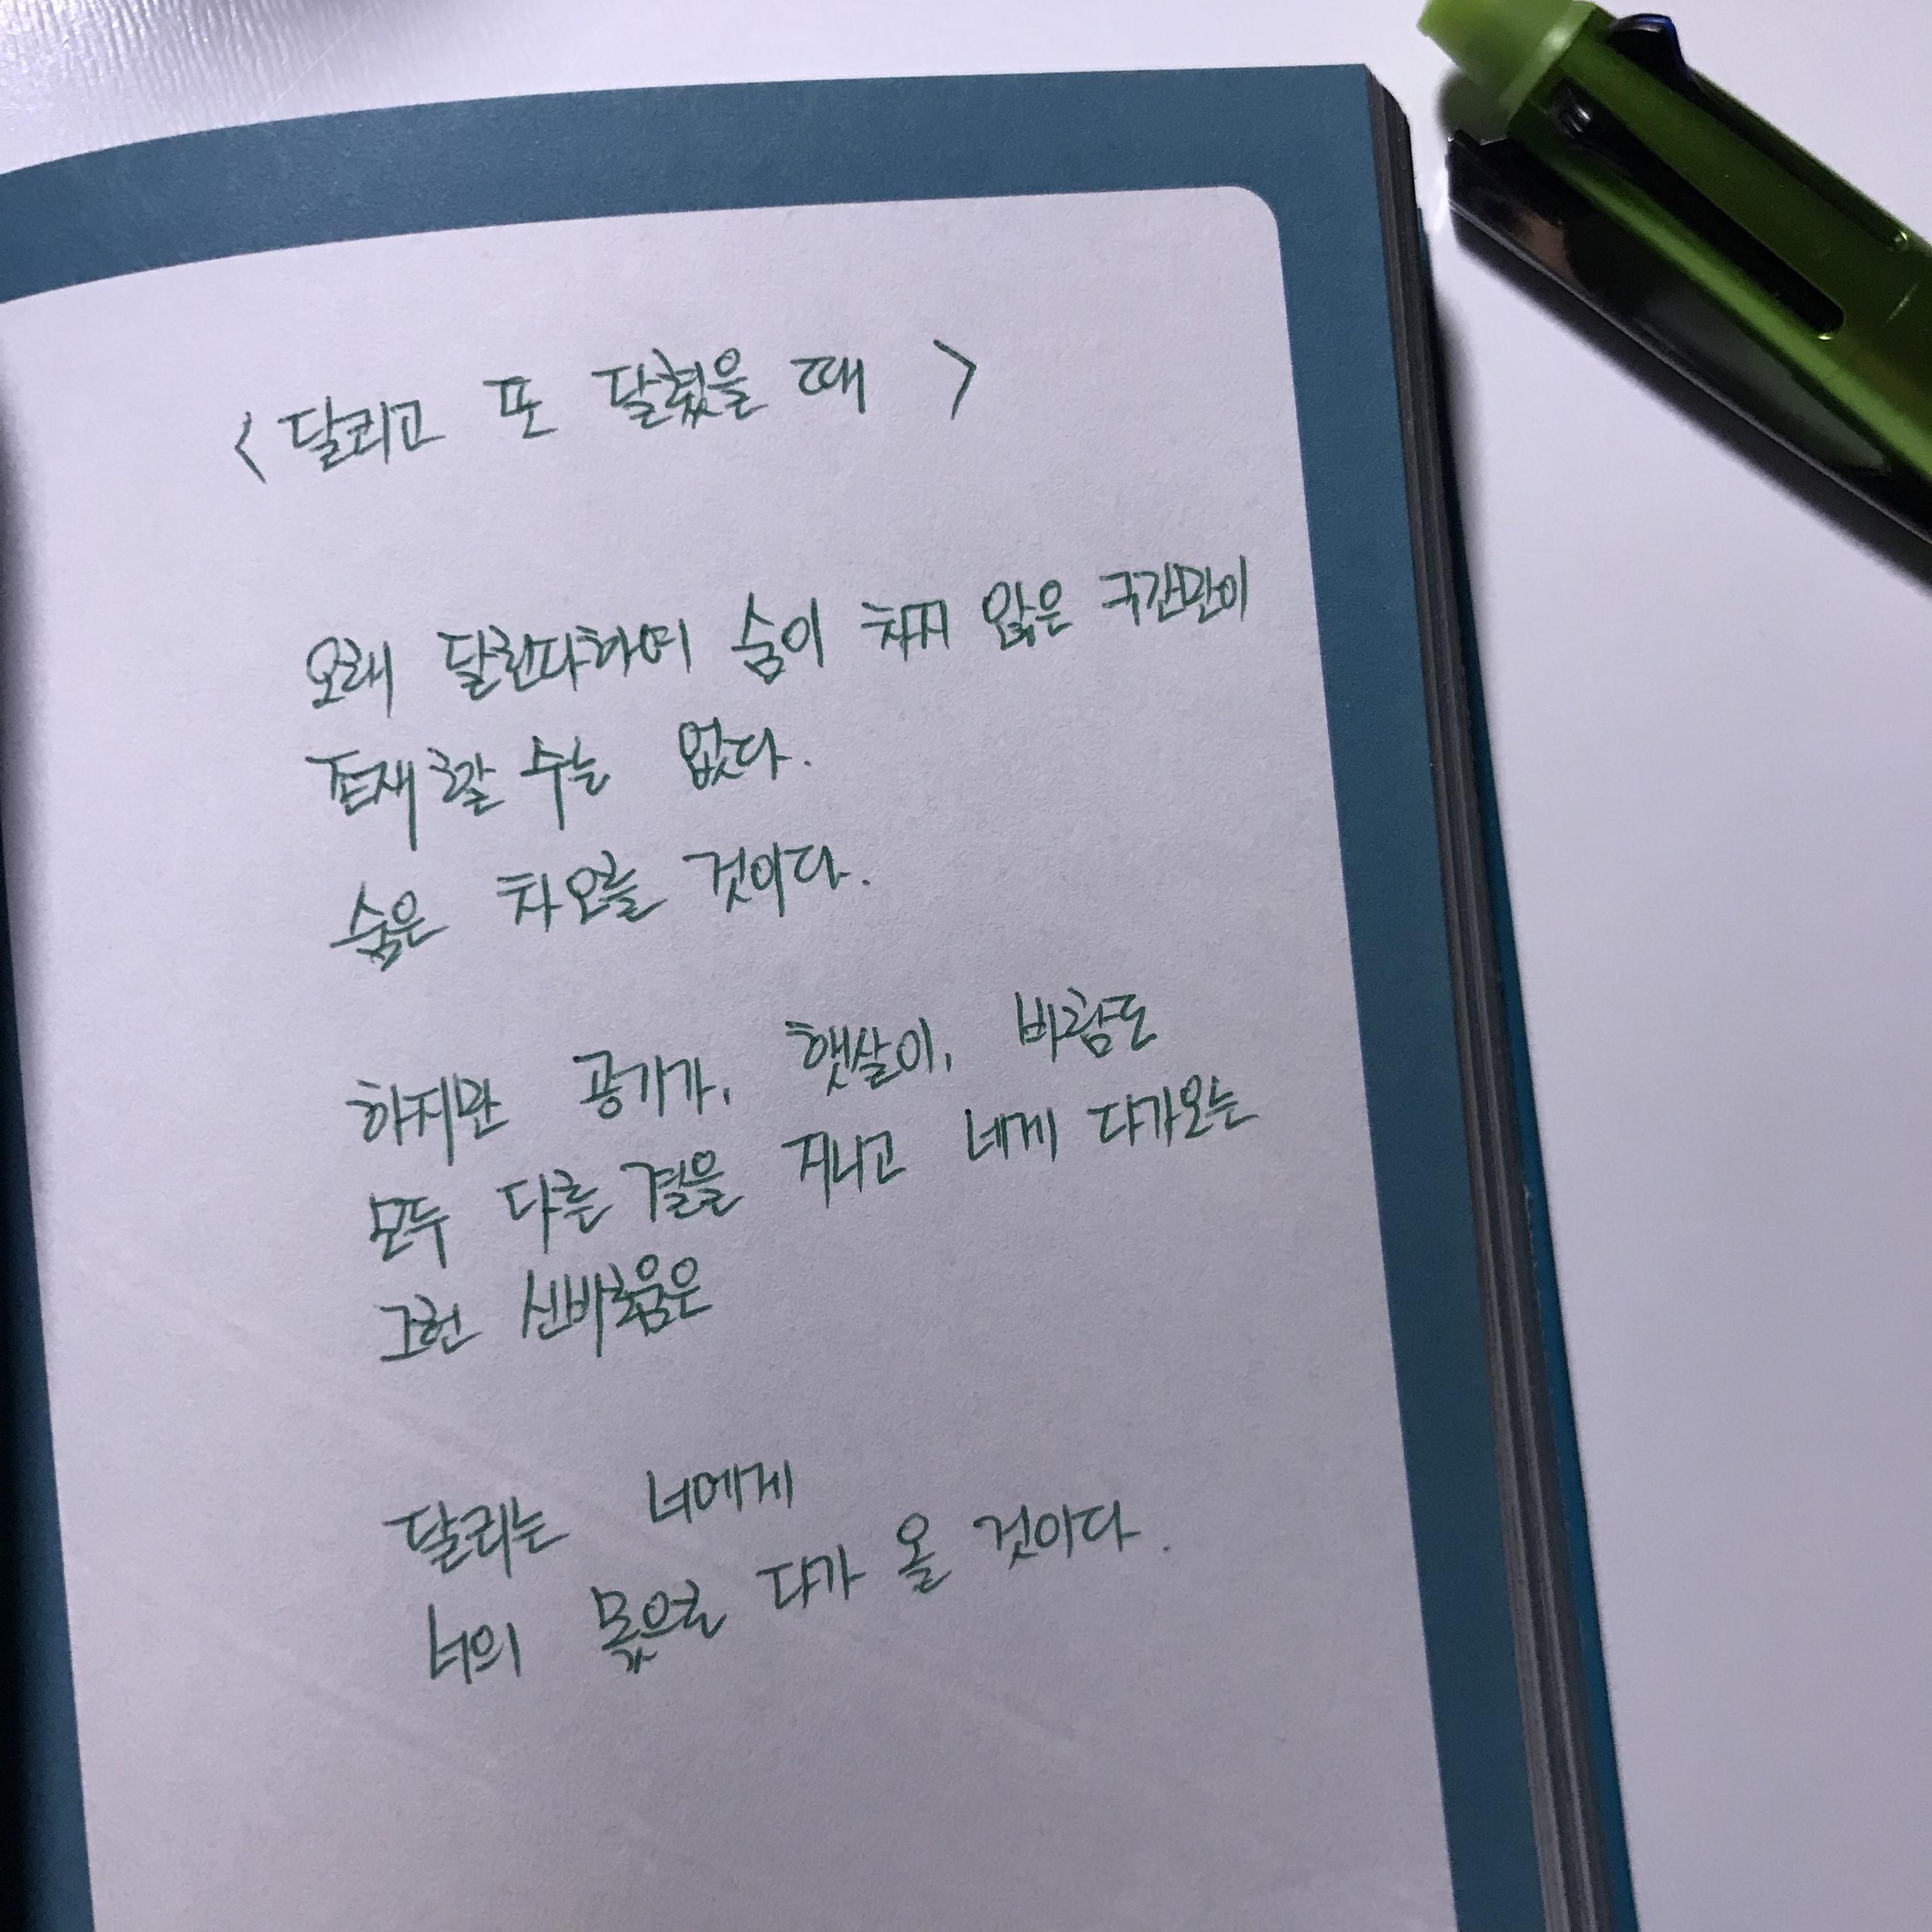 <달리고 또 달렸을 때>
오래 달린다하며 숨이 차지 않은 구간만이
존재할 수는 없다.
숨은 차오를 것이다.
하지만 공기가, 햇살이, 바람도
모두 다른 결을 지니고 네게 다가오는
그런 신비로움은
달리는 너에게
너의 몫으로 다가 올 것이다.